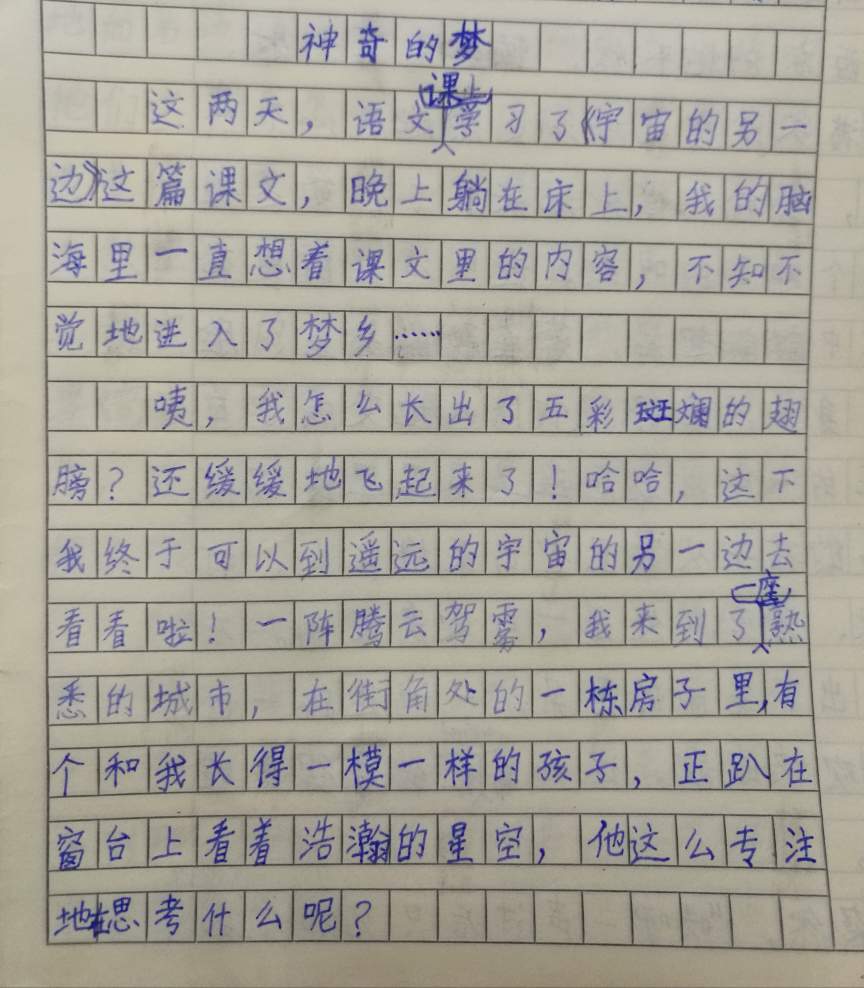 神奇的梦
这两天，语文课上学习了《宇宙的另一
边》这篇课文，晚上躺在床上，我的脑
海里一直想着课文里的内容，不知不
觉地进入了梦乡……
咦，我怎么长出了五彩斑斓的翅
膀？还缓缓地飞起来了！哈哈，这下
我终于可以到遥远的宇宙的另一边去
看看啦！一阵腾云驾雾，我来到了一座熟
悉的城市，在街角处的一栋房子里，有
个和我长得一模一样的孩子，正趴在
窗台上看着浩瀚的星空，他这么专注
地在思考什么呢？